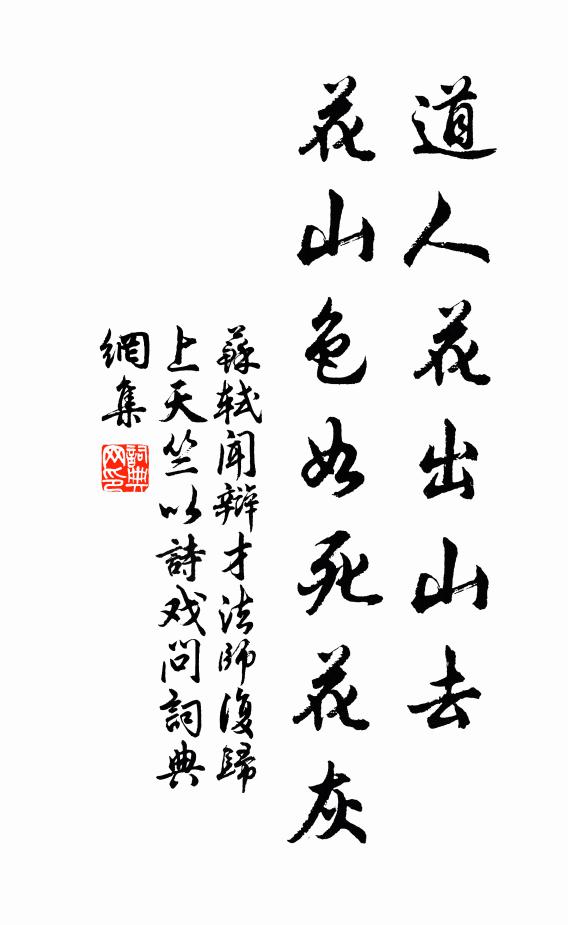 道人花出山去
花山色如死花灰
蘇軾聞辯才法師復歸
上天竺以詩戏問詞典
網集
詞典
网印